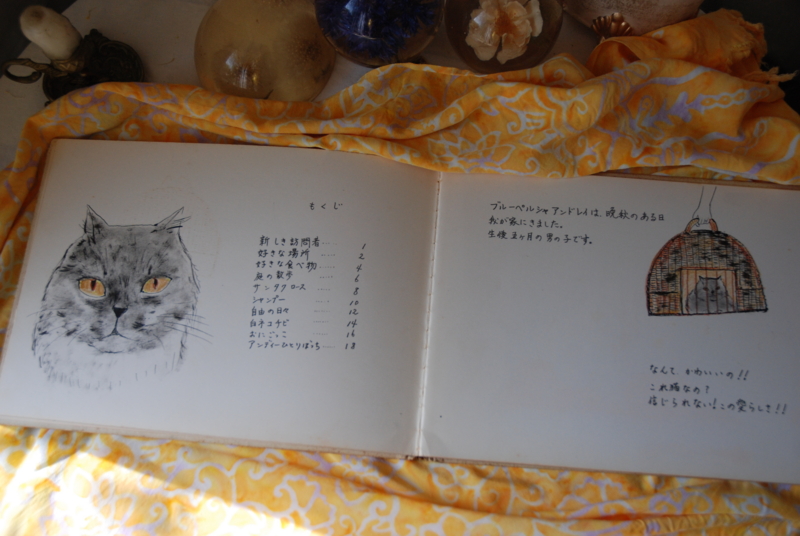 もくじ
新しき訪問者 …… 1
好きな場所 …… 2
好きな食べ物 …… 4
庭の散歩 …… 6
サンタクロース …… 8
シャンプー …… 10
自由の日々 …… 12
白子コチビ …… 14
おにごっこ …… 16
アンディーひとりぼっち …… 18
ブルーペルシャアンドレイは、晩秋のある日
私が家にきました。
生後五ヶ月の男の子です。
なんて かわいいの!!
これ猫なの?
信じられない!この愛らしさ!!